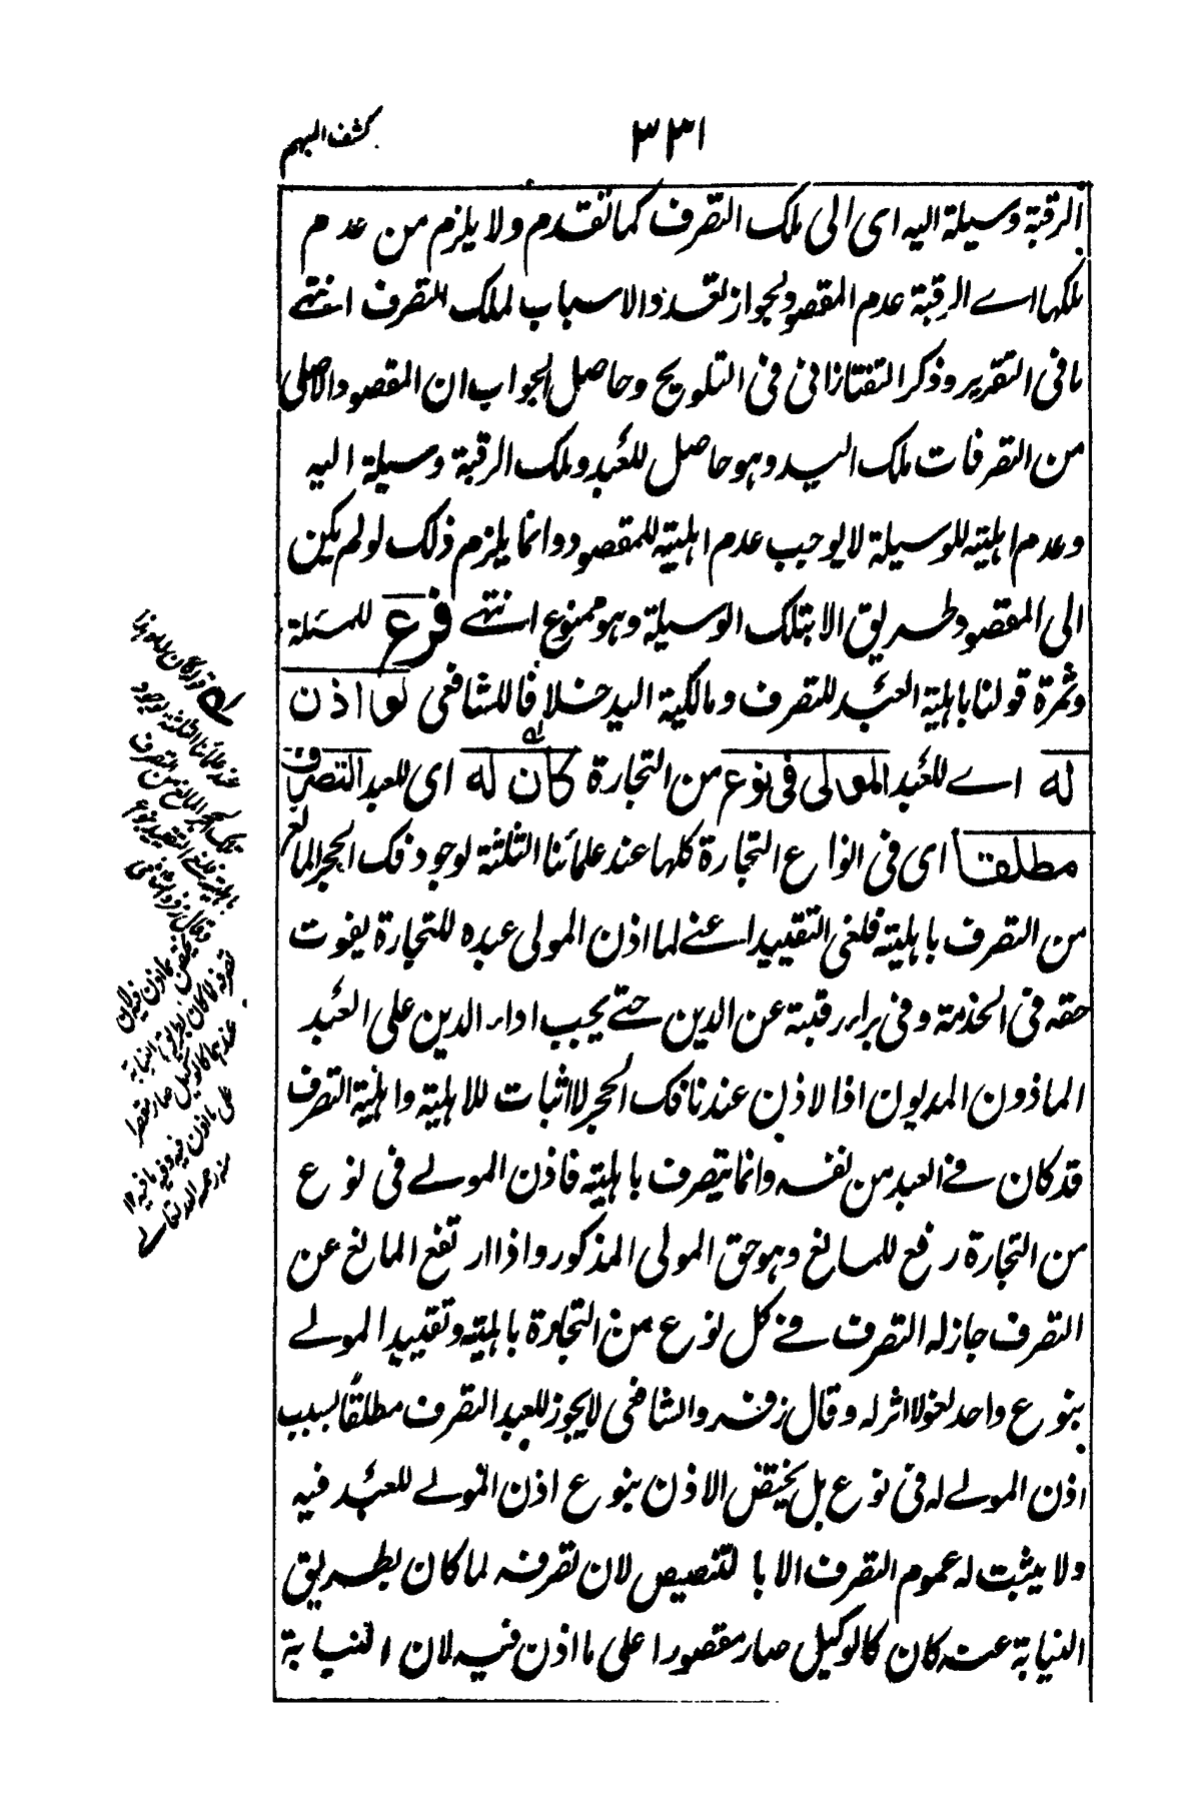 ٣٣١
كشف المبهم
الرقبة وسيلة اليه اى الى ملك التصرف كما تقدم ولا يلزم من عدم
ملكها اے الرقبة عدم المقصود لجواز تعدد الاسباب لملك التصرف انتهے
ما فى التقرير وذكر التفتازانى فى التلويح وحاصل الجواب ان المقصود الاصلى
من التصرفات ملك اليد وهو حاصل للعبد وملك الرقبة وسيلة اليه
وعدم اهليته للوسيلة لا يوجب عدم اهليته للمقصود وانما يلزم ذلك لو لم يكن
الى المقصود طريق الا بتلك الوسيلة وهو ممنوع انتهے فرع للمسئلة
وثمرة قولنا باهلية العبد للتصرف ومالكية اليد خلافا للشافعى لو اذن
له اے للعبد المولى فى نوع من التجارة كان له اى للعبد التصرف
مطلقا اى فى انواع التجارة كلها عند علمائنا الثلثة لوجود فك الحجر المانع
من التصرف باهليته فلغى التقييد اعنے لما اذن المولى عبده للتجارة يفوت
حقه فى الخدمة وفى براءة رقبة عن الدين حتے يجب اداء الدين على العبد
الماذون المديون اذا الاذن عندنا فك الحجر لا اثبات للاهلية واهلية التصرف
قد كان فے العبد من نفسه وانما يتصرف باهليته فاذن المولے فى نوع
من التجارة رفع للمانع وهو حق المولى المذكور واذا ارتفع المانع عن
التصرف جاز له التصرف فے كل نوع من التجارة باهليته وتقييد المولے
بنوع واحد لغو لا اثر له وقال زفر والشافعى لا يجوز للعبد التصرف مطلقاً بسبب
اذن المولے له فى نوع بل يختص الاذن بنوع اذن المولے للعبد فيه
ولا يثبت له عموم التصرف الا بالتنصيص لان تصرفه لما كان بطريق
النيابة عنه كان كالوكيل صار مقصورا على ما اذن فيه لان النيابة
عند علمائنا الثلثة لوجود
فك الحجر المانع من التصرف
باهليته فلغى التقييد بنوع
وقال زفر والشافعى
يختص بما اذن فيه لان
تصرفه لما كان بطريق النيابة
عندهما كالوكيل صار مقصورا
على ما اذن فيه وفيه ما فيه ١٢
منه رحمه الله تعالے